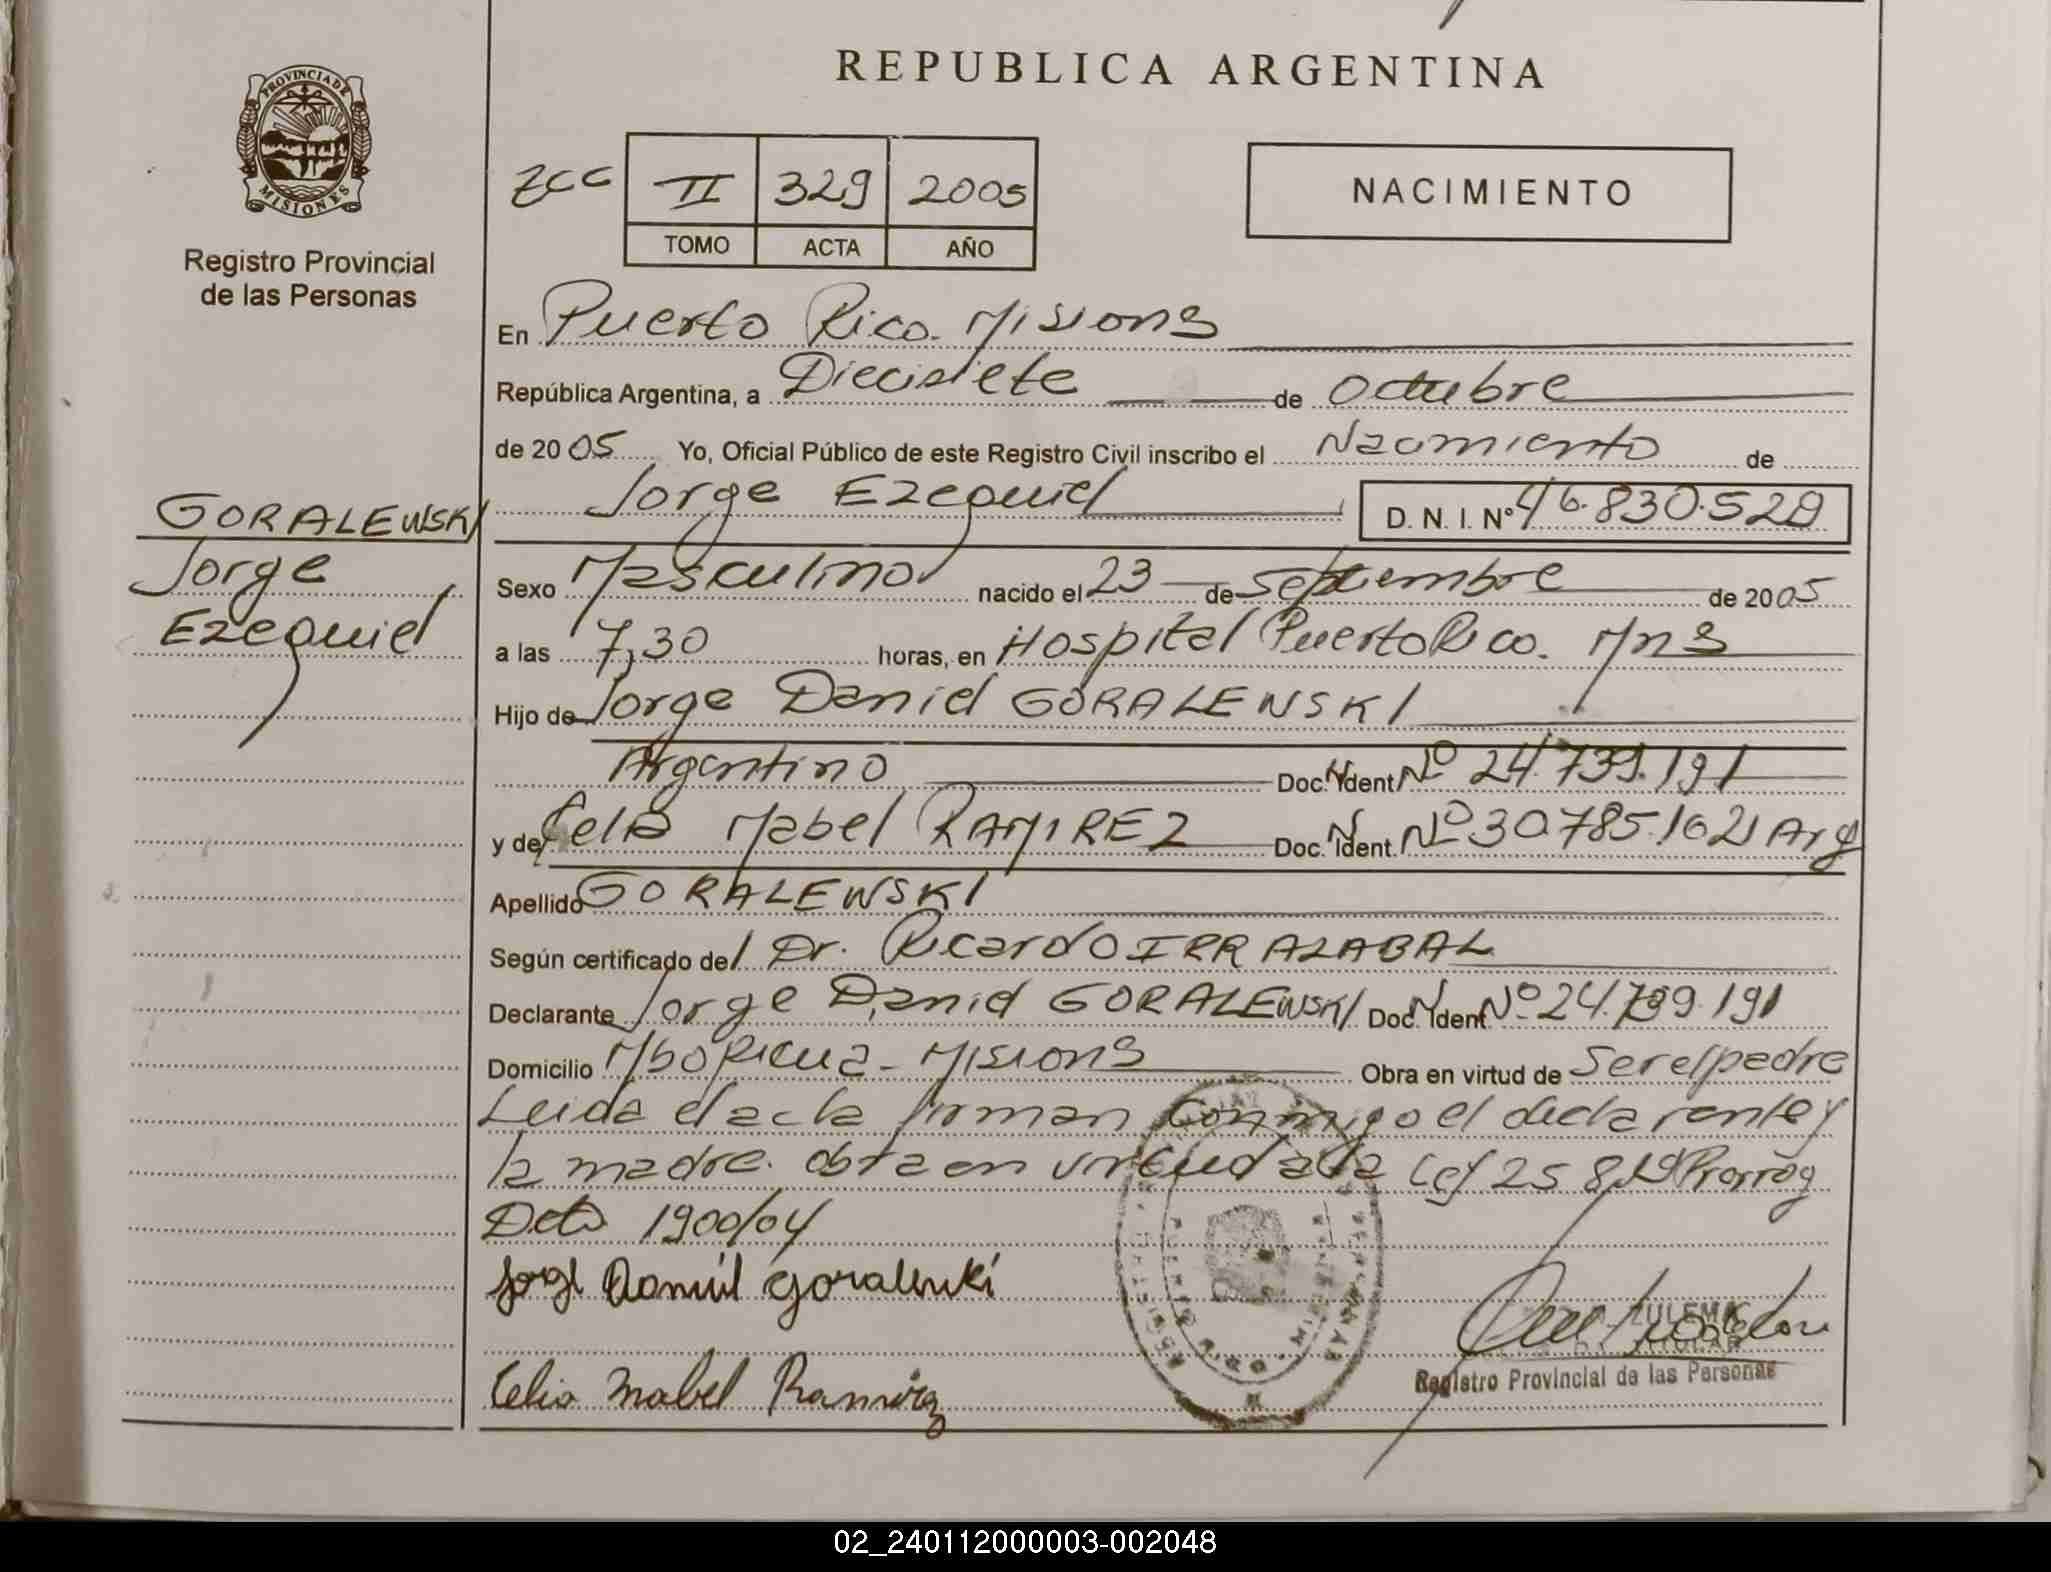 REPUBLICA ARGENTINA
PROVINCIA DE
MISIONES
Registro Provincial
de las Personas
II 329 2005
TOMO ACTA AÑO
NACIMIENTO
En Puerto Rico. Misions
República Argentina, a Diecisiete de Octubre
de 2005 Yo, Oficial Público de este Registro Civil inscribo el Nacimiento de
GORALEWSKI
Jorge
Ezequiel
Jorge Ezequiel D. N. I. Nº 46.830.529
Sexo Masculino nacido el 23 de Septiembre de 2005
a las 7,30 horas, en Hospital Puerto Rico. Mns
Hijo de Jorge Daniel GORALEWSKI
Argentino Doc. Ident. Nº 24.739.191
y de Celia Mabel RAMIREZ Doc. Ident. Nº 30.785.162 Arg
Apellido GORALEWSKI
Según certificado del Dr. Ricardo IRRAZABAL
Declarante Jorge Daniel GORALEWSKI Doc. Ident. Nº 24.739.191
Domicilio Mbopicua - Misions Obra en virtud de Ser el padre
Leida el acta firman conmigo el declarante y
la madre. obra en virtud a la Ley 25.819 Prorrog
Dcto 1900/04
Jorge Daniel Goraleuski
Celia Mabel Ramirez
ZULEMA
TITULAR
Registro Provincial de las Personas
02_240112000003-002048